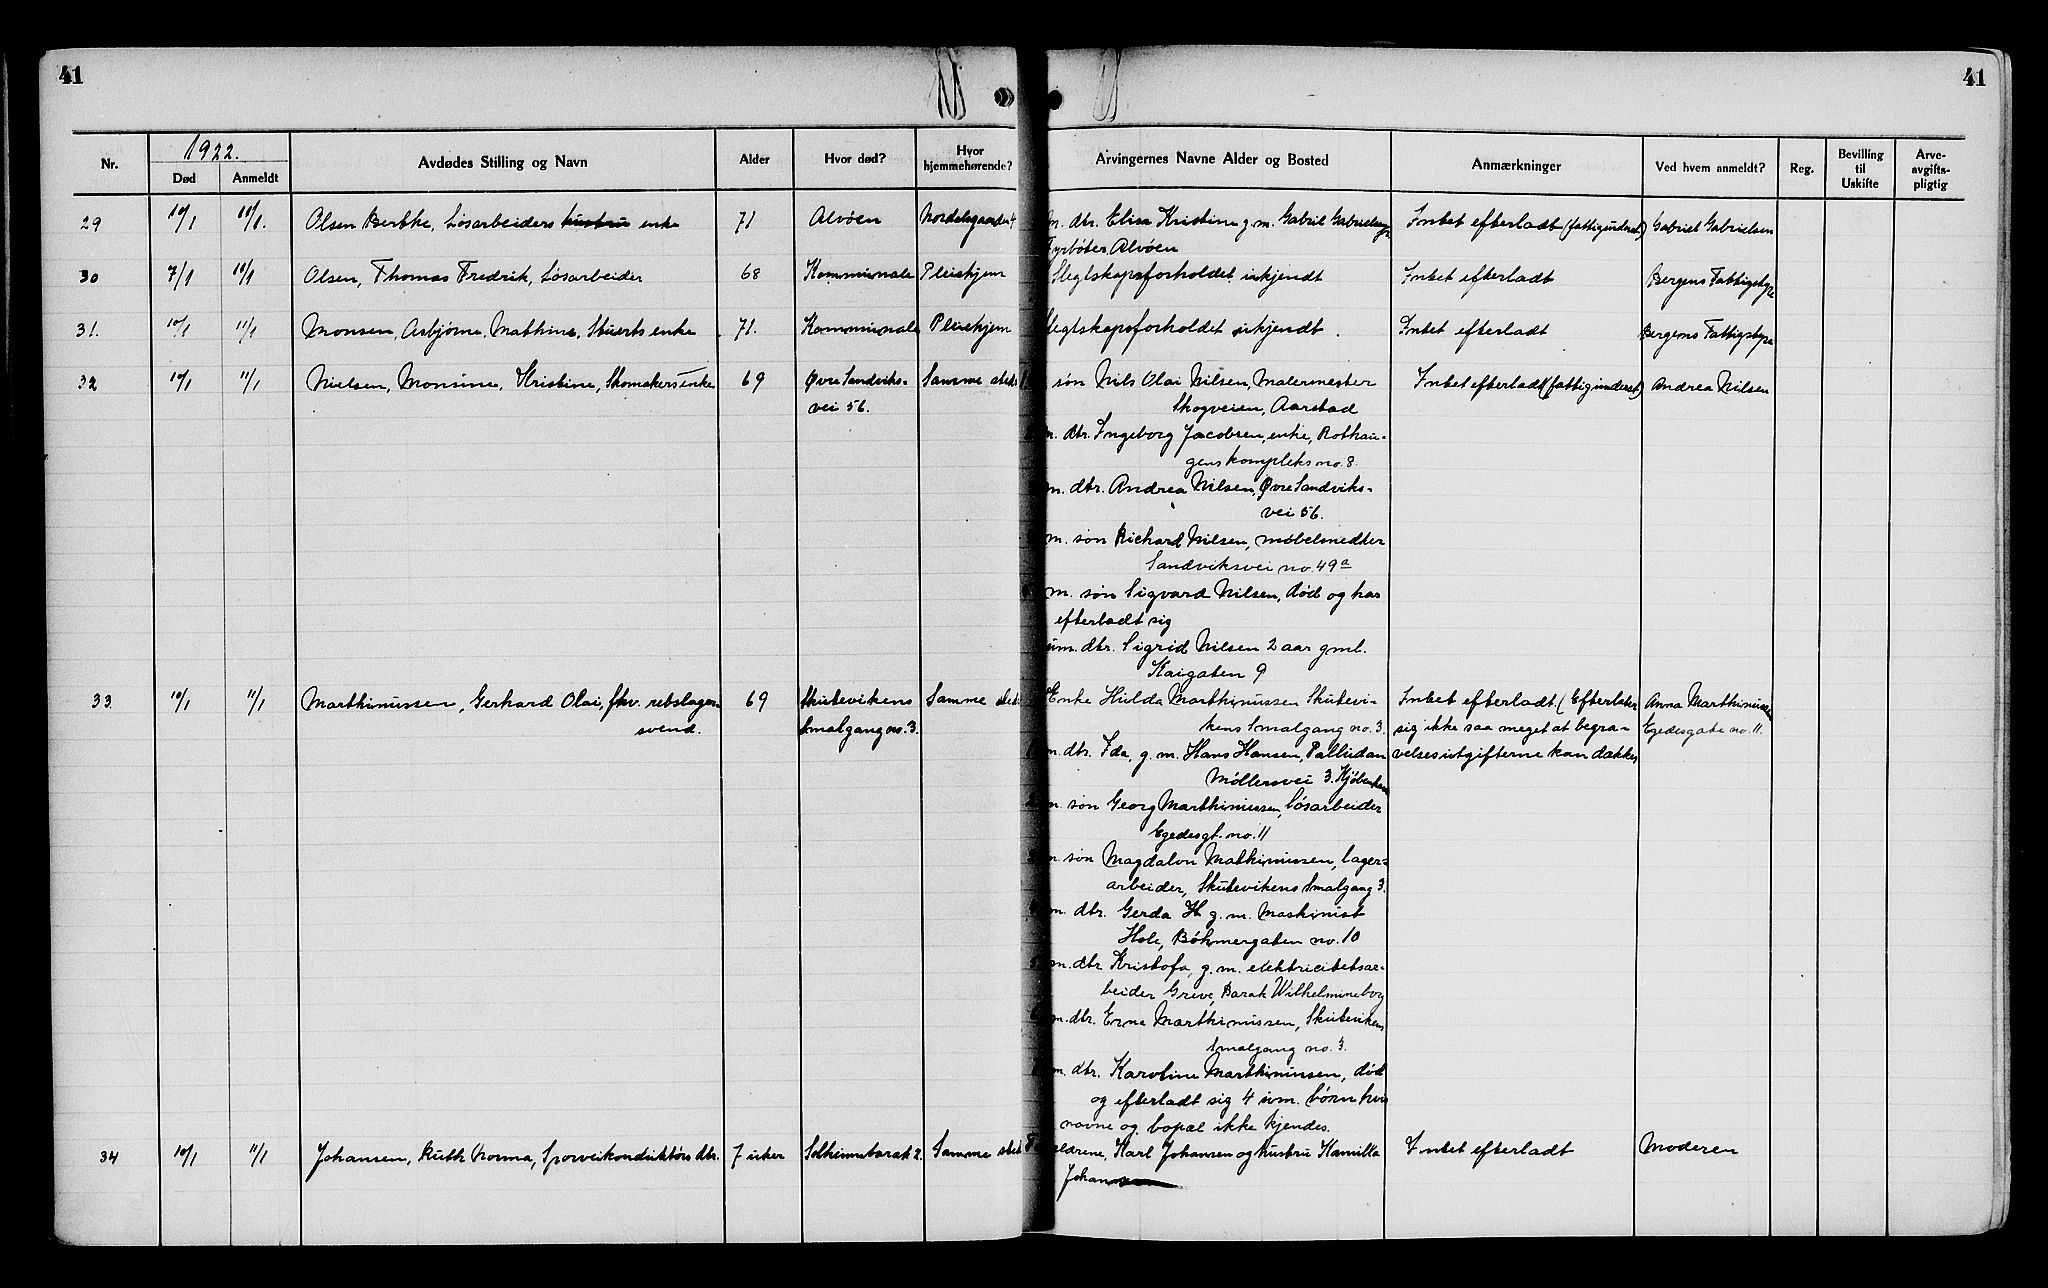 41
41
1922.
Nr.
Død
Anmeldt
Avdødes Stilling og Navn
Alder
Hvor død?
Hvor hjemmehørende?
Arvingernes Navne Alder og Bosted
Anmærkninger
Ved hvem anmeldt?
Reg.
Bevilling til Uskifte
Arveavgiftspligtig
29 10/1 11/1. Olsen Berthe, Løsarbeiders hustru enke 71 Alvøen m. dtr. Elisa Kristine g. m. Gabriel Gabrielsen Intet efterladt (fattigunderst) Gabriel Gabrielsen
Fyrbøter Alvøen
30 7/1 10/1 Olsen, Thomas Fredrik, Løsarbeider 68 Kommunale Pleiehjem Slegtskapsforholdet ukjendt Intet efterladt Bergens Fattigstyre
31. 10/1 11/1 Monsen, Asbjørne, Mathine, Stuerts enke 71. Kommunale Pleiehjem Slegtskapsforholdet ukjendt. Intet efterladt Bergens Fattigstyre
32 10/1 11/1 Nielsen, Monsine, Kristine, Skomakers enke 69 Øvre Sandviks- Samme sted søn Nils Olai Nilsen, Malermester Intet efterladt (fattigunderst) Andrea Nilsen
vei 56. Skogveien, Aarstad
m. dtr. Ingeborg Jacobsen, enke, Rothau-
genskompleks no. 8.
m. dtr. Andrea Nilsen, Øvre Sandviks-
vei 56.
m. søn Richard Nilsen, møbelsnedker
Sandviksvei no. 49a
m. søn Sigvard Nilsen, død og har
efterladt sig
um. dtr. Sigrid Nilsen 2 aar gml.
Kaigaten 9
33 10/1 11/1 Marthinussen, Gerhard Olai, fhv. rebslager- 69 Skutevikens Samme sted Enke Hulda Marthinussen Skutevi- Intet efterladt. (Efterlater Anna Marthinussen
svend. Smalgang no. 3. kens Smalgang no. 3. sig ikke saa meget at begra- Egedesgate no. 11.
m. dtr. Ida, g. m. Hans Hansen, Palludan velsesutgifterne kan dækkes
Møllersvei 3. Kjøbenhavn
m. søn Georg Marthinussen, Løsarbeider
Egedesgt. no. 11
m. søn Magdalon Mathinussen, lager-
arbeider, Skutevikens Smalgang 3.
m. dtr. Gerda H g. m. Maskinist
Hole, Böhmergaten no. 10
m. dtr Kristofa, g. m. elektricitetsar-
beider Greve, Barak Wilhelmineborg
m. dtr. Erna Marthinussen, Skuteviken
Smalgang no. 3.
m. dtr. Karoline Marthinussen, død
og efterladt sig 4 um. børn hvis
navne og bopæl ikke kjendes.
34 10/1 11/1 Johansen, Ruth Norma, Sporveikonduktørs dtr. 7 uker Solheimsbarak 2. Samme sted Forældrene, Karl Johansen og hustru Kamilla Intet efterladt Moderen
Johansen